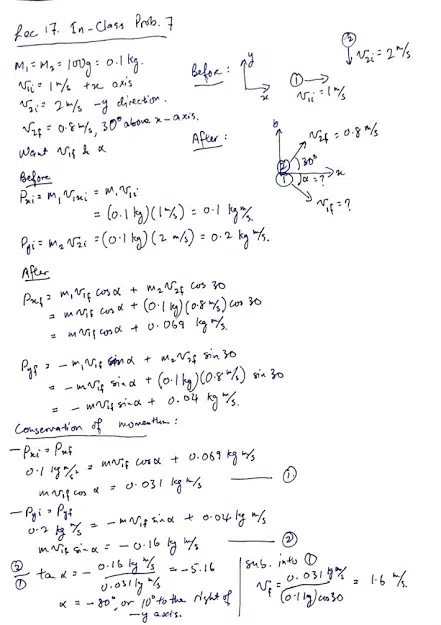 Lec 17. In-Class Prob. 7
M₁ = M₂ = 100g = 0.1 kg.
v₁ᵢ = 1 m/s +x axis
v₂ᵢ = 2 m/s -y direction.
v₂f = 0.8 m/s, 30° above x-axis.
Want v₁f & α
Before:
y
x
①
v₁ᵢ = 1 m/s
②
v₂ᵢ = 2 m/s
After:
v₂f = 0.8 m/s
②
30°
①
x
α = ?
v₁f = ?
Before
Pxi = m₁ v₁xi = m₁ v₁ᵢ
= (0.1 kg)(1 m/s) = 0.1 kg m/s.
Pyi = m₂ v₂i = (0.1 kg)(2 m/s) = 0.2 kg m/s.
After
Pxf = m₁ v₁f cos α + m₂ v₂f cos 30
= m v₁f cos α + (0.1 kg)(0.8 m/s) cos 30
= m v₁f cos α + 0.069 kg m/s.
Pyf = - m₁ v₁f sin α + m₂ v₂f sin 30
= - m v₁f sin α + (0.1 kg)(0.8 m/s) sin 30
= - m v₁f sin α + 0.04 kg m/s.
Conservation of momentum:
- Pxi = Pxf
0.1 kg m/s² = m v₁f cos α + 0.069 kg m/s
m v₁f cos α = 0.031 kg m/s ①
- Pyi = Pyf
0.2 kg m/s = - m v₁f sin α + 0.04 kg m/s
m v₁f sin α = - 0.16 kg m/s ②
②/① tan α = - 0.16 kg m/s / 0.031 kg m/s = -5.16
α = -80°, or 10° to the right of
-y axis.
sub. into ①
vf = 0.031 kg m/s / (0.1 kg) cos 30 = 1.6 m/s.